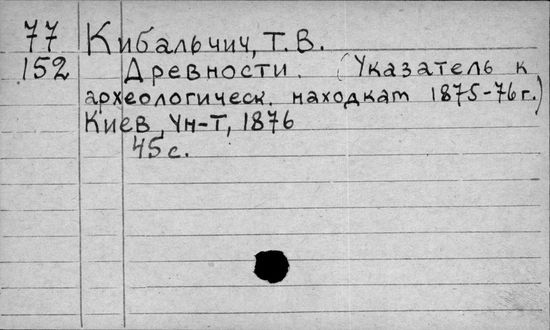 77 Кибальчич, Т. В.
152 Древности. (Указатель к
археологическ. находкам 1875-76 г.)
Киев, Ун-т, 1876
45 с.